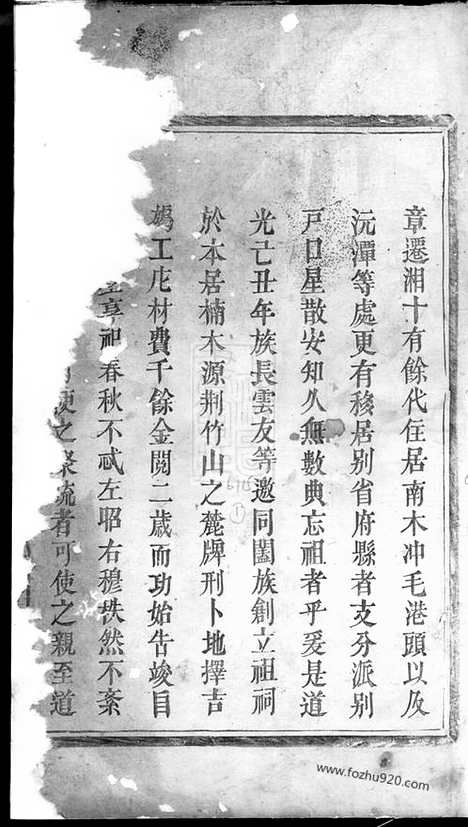 章遷湘十有餘代住居南木冲毛港頭以及
沅潭等處更有移居别省府縣者支分派别
戸口星散安知久無數典忘祖者乎爰是道
光亡丑年族長雲友等邀同闔族創立祖祠
於本居楠木源荆竹山之麓牌刑卜地擇吉
鳩工庀材費千餘金閲二歳而功始告竣目
享祀春秋不忒左昭右穆秩然不紊
使之聚疏者可使之親至道
www.fozhu920.com